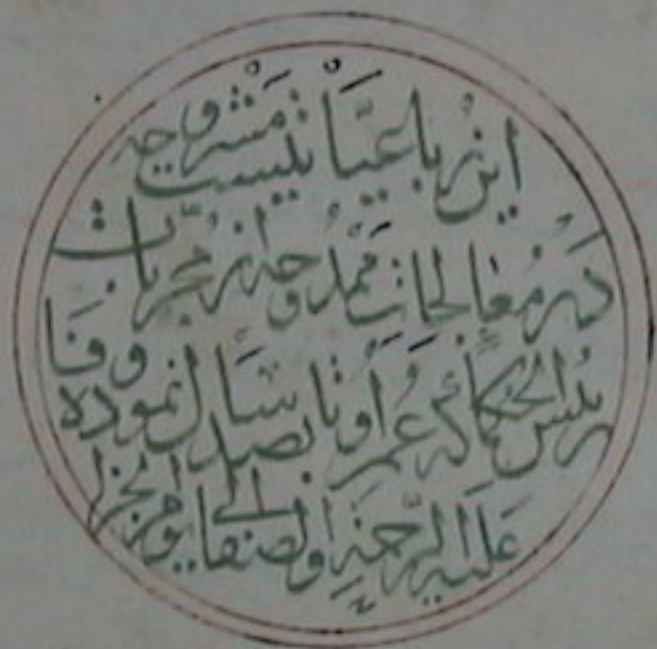 این رباعیّاتیست مشروحه
در معالجات ممدوحه از مجرّبات
رئیس الحکمائ که عمر او تا بصد سال نموده وفا
علیه الرحمة و الصفا الی یوم الجزا